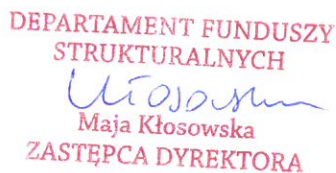 DEPARTAMENT FUNDUSZY
STRUKTURALNYCH
Kłosowska
Maja Kłosowska
ZASTĘPCA DYREKTORA